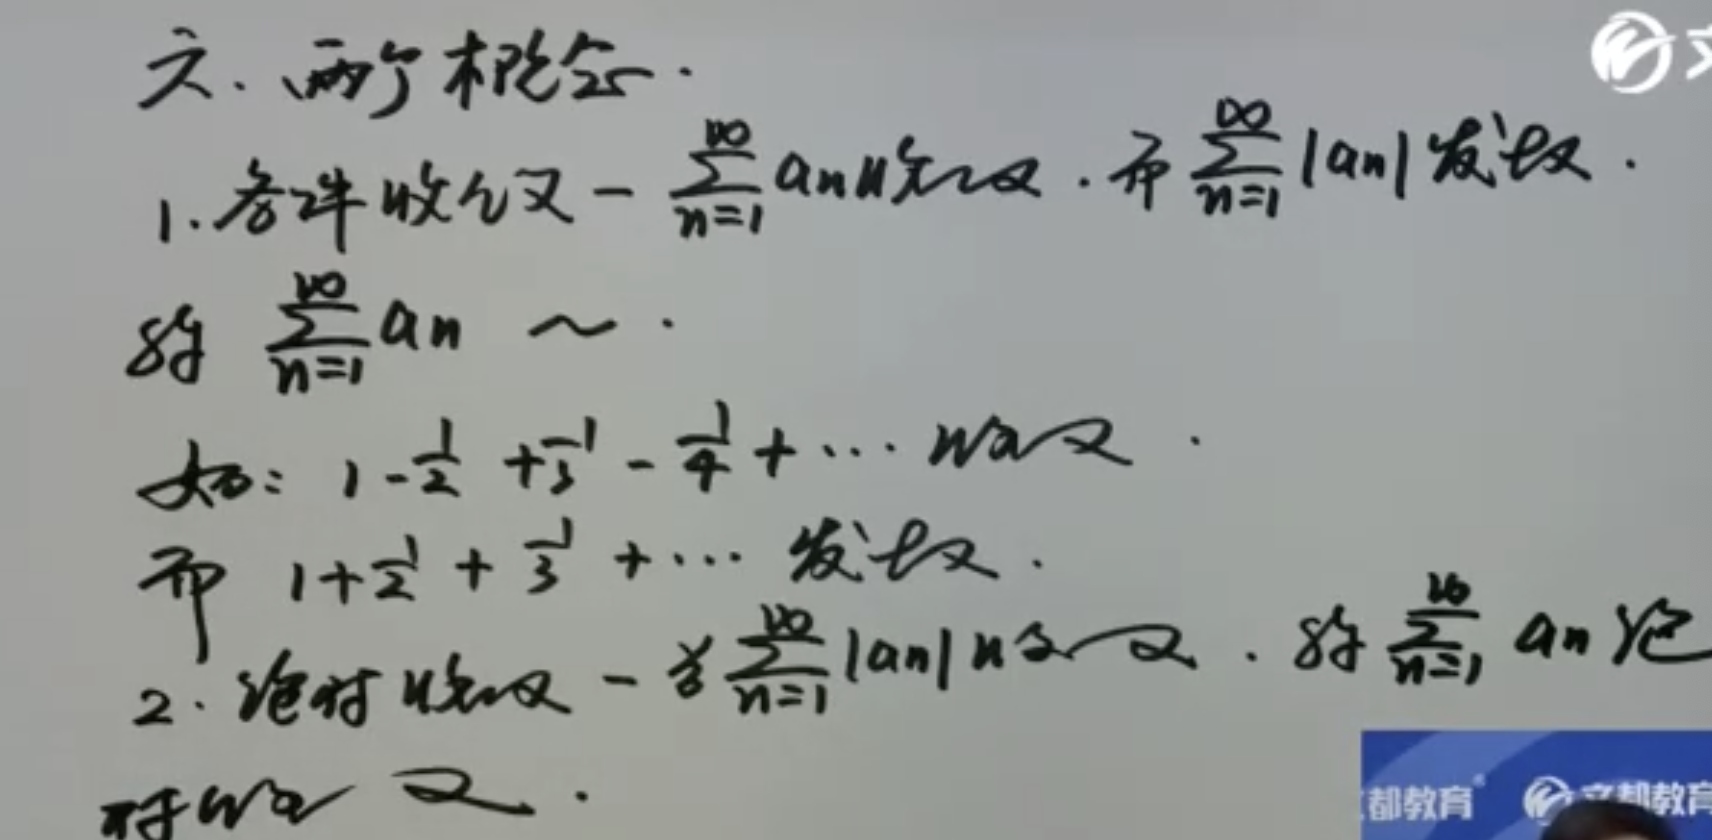 六. 两个概念.
1. 条件收敛 - \sum_{n=1}^{\infty} a_n 收敛. 而 \sum_{n=1}^{\infty} |a_n| 发散.
称 \sum_{n=1}^{\infty} a_n ~ .
如: 1 - \frac{1}{2} + \frac{1}{3} - \frac{1}{4} + ... 收敛.
而 1 + \frac{1}{2} + \frac{1}{3} + ... 发散.
2. 绝对收敛 - 若 \sum_{n=1}^{\infty} |a_n| 收敛. 称 \sum_{n=1}^{\infty} a_n 绝
对收敛.
文
都教育
文都教育